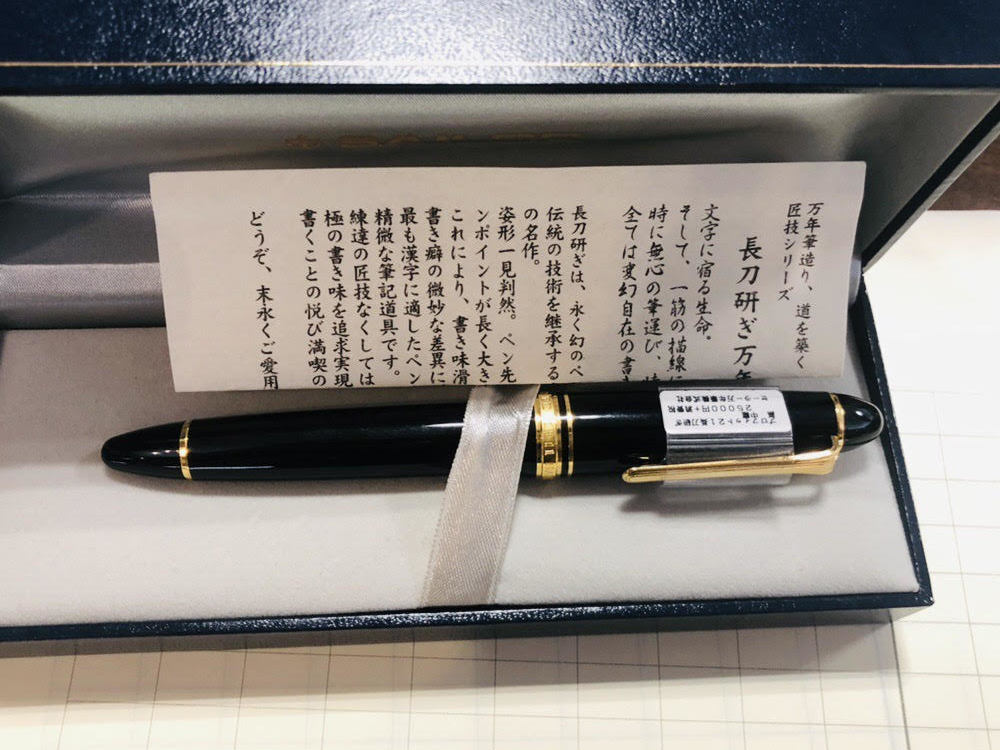 万年筆造り、道を築く
匠技シリーズ
長刀研ぎ万年
文字に宿る生命。
そして、一筋の描線に
時に無心の筆運び、時
全ては変幻自在の書き
長刀研ぎは、永く幻のペ
伝統の技術を継承する
の名作。
姿形一見判然。ペン先
ンポイントが長く大き
これにより、書き味滑
書き癖の微妙な差異に
最も漢字に適したペン
精微な筆記道具です。
練達の匠技なくしては
極の書き味を追求実現
書くことの悦び満喫の
どうぞ、末永くご愛用
プロフィット21長刀研ぎ
25000円+消費税
セーラー万年筆株式会社